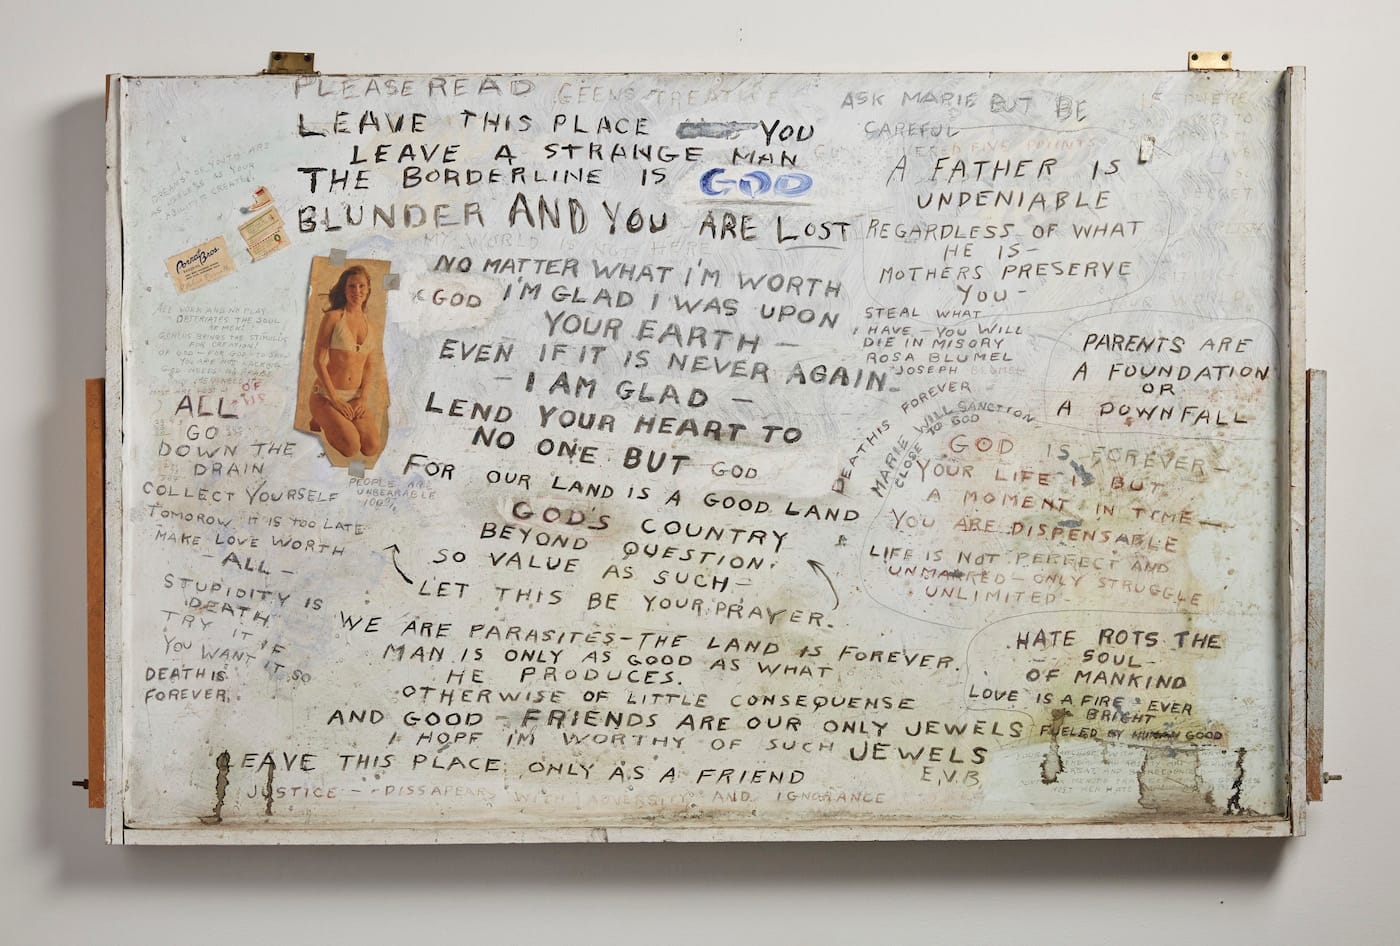 PLEASE READ
LEAVE THIS PLACE YOU
LEAVE A STRANGE MAN
THE BORDERLINE IS GOD
BLUNDER AND YOU ARE LOST
MY WORLD IS NOT HERE
NO MATTER WHAT I'M WORTH
GOD I'M GLAD I WAS UPON
YOUR EARTH —
EVEN IF IT IS NEVER AGAIN —
— I AM GLAD —
LEND YOUR HEART TO
NO ONE BUT GOD
FOR OUR LAND IS A GOOD LAND
GOD'S COUNTRY
BEYOND QUESTION.
SO VALUE AS SUCH —
LET THIS BE YOUR PRAYER.
WE ARE PARASITES – THE LAND IS FOREVER.
MAN IS ONLY AS GOOD AS WHAT
HE PRODUCES.
OTHERWISE OF LITTLE CONSEQUENSE
AND GOOD – FRIENDS ARE OUR ONLY JEWELS
I HOPE IM WORTHY OF SUCH JEWELS
E.V.B.
LEAVE THIS PLACE ONLY AS A FRIEND
JUSTICE – DISSAPEARS WITH ADVERSITY AND IGNORANCE
DREAMS OF YOUTH ARE
AS
ALL WORK AND NO PLAY
THE SOUL
OF MEN!
GENIUS BRINGS THE STIMULUS
FOR CREATION!
ALL
GO
DOWN THE
DRAIN
COLLECT YOURSELF
TOMOROW IT IS TOO LATE
MAKE LOVE WORTH
— ALL —
STUPIDITY IS
DEATH
TRY IT IF
YOU WANT IT SO
DEATH IS
FOREVER.
PEOPLE ARE
UNBEARABLE
100%
ASK MARIE BUT BE
CAREFUL
A FATHER IS
UNDENIABLE
REGARDLESS OF WHAT
HE IS —
MOTHERS PRESERVE
YOU —
STEAL WHAT
I HAVE – YOU WILL
DIE IN MISORY
ROSA BLUMEL
JOSEPH BLUMEL
PARENTS ARE
A FOUNDATION
OR
A DOWNFALL
DEATH IS FOREVER
MARIE WILL SANCTION
CLOSE TO GOD
GOD IS FOREVER —
YOUR LIFE IS BUT
A MOMENT IN TIME —
YOU ARE DISPENSABLE
LIFE IS NOT PERFECT AND
UNMARRED – ONLY STRUGGLE
UNLIMITED –
HATE ROTS THE
— SOUL —
OF MANKIND
LOVE IS A FIRE EVER
BRIGHT
FUELED BY HUMAN GOOD